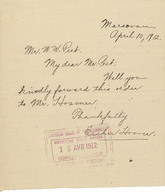 Marsovan
April 10, 1912.
Mr. W. W. Peet.
My dear Mr. Peet.
Will you
kindly forward this order
to Mr. Hosmer.
Thankfully
18 AVR 1912